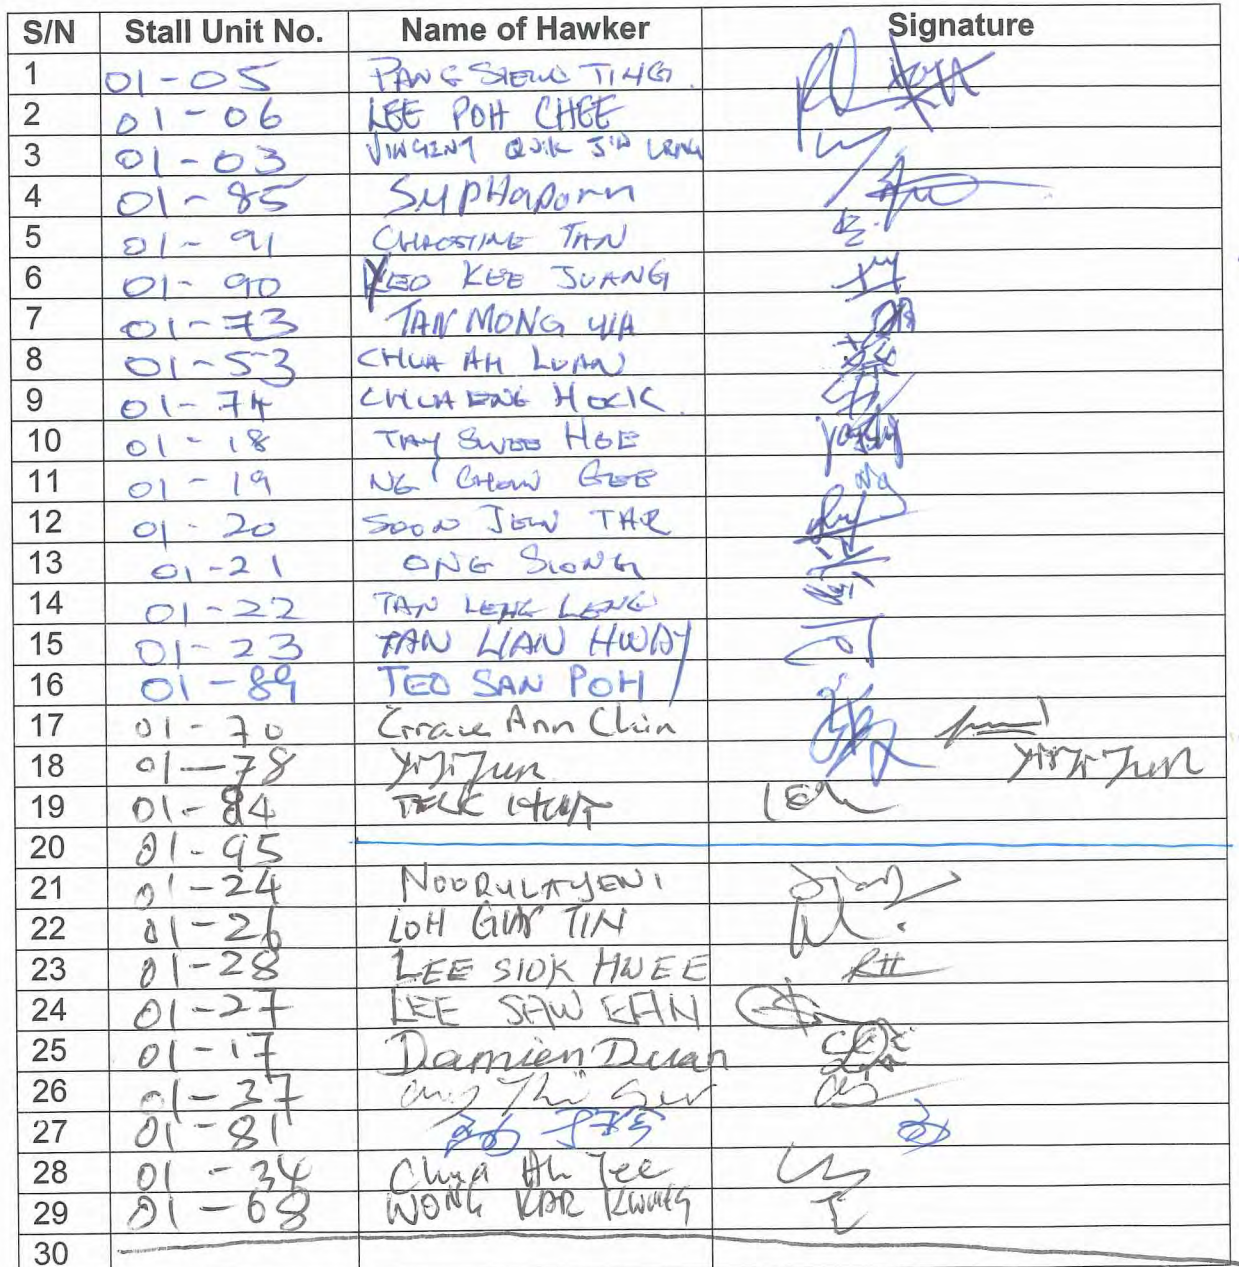 S/N Stall Unit No. Name of Hawker Signature
1 01-05 PANG SIEW TING
2 01-06 LEE POH CHEE
3 01-03 VINCENT QUIK
4 01-85 SUPHAPORN
5 01-91 TAN
6 01-90 YEO KEE JUANG
7 01-73 TAN MONG
8 01-53 CHUA AH LUAN
9 01-74 CHUA ENG HOCK
10 01-18 TAY SWEE HOE
11 01-19 NG CHOW GEE Ng
12 01-20 SOON JEW TAR
13 01-21 ONG SIONG
14 01-22 TAN LENG LENG
15 01-23 TAN LIAN HWAY
16 01-89 TEO SAN POH
17 01-70 Grace Ann Chin
18 01-78
19 01-84 TECK
20 01-95
21 01-24 NOORULAYENI
22 01-26 LOH GUAT TIN
23 01-28 LEE SIOK HWEE
24 01-27 LEE SAW EAN
25 01-17 Damien Duan
26 01-37
27 01-81
28 01-34 Chua Ah Tee
29 01-68 WONG KAR KWONG
30